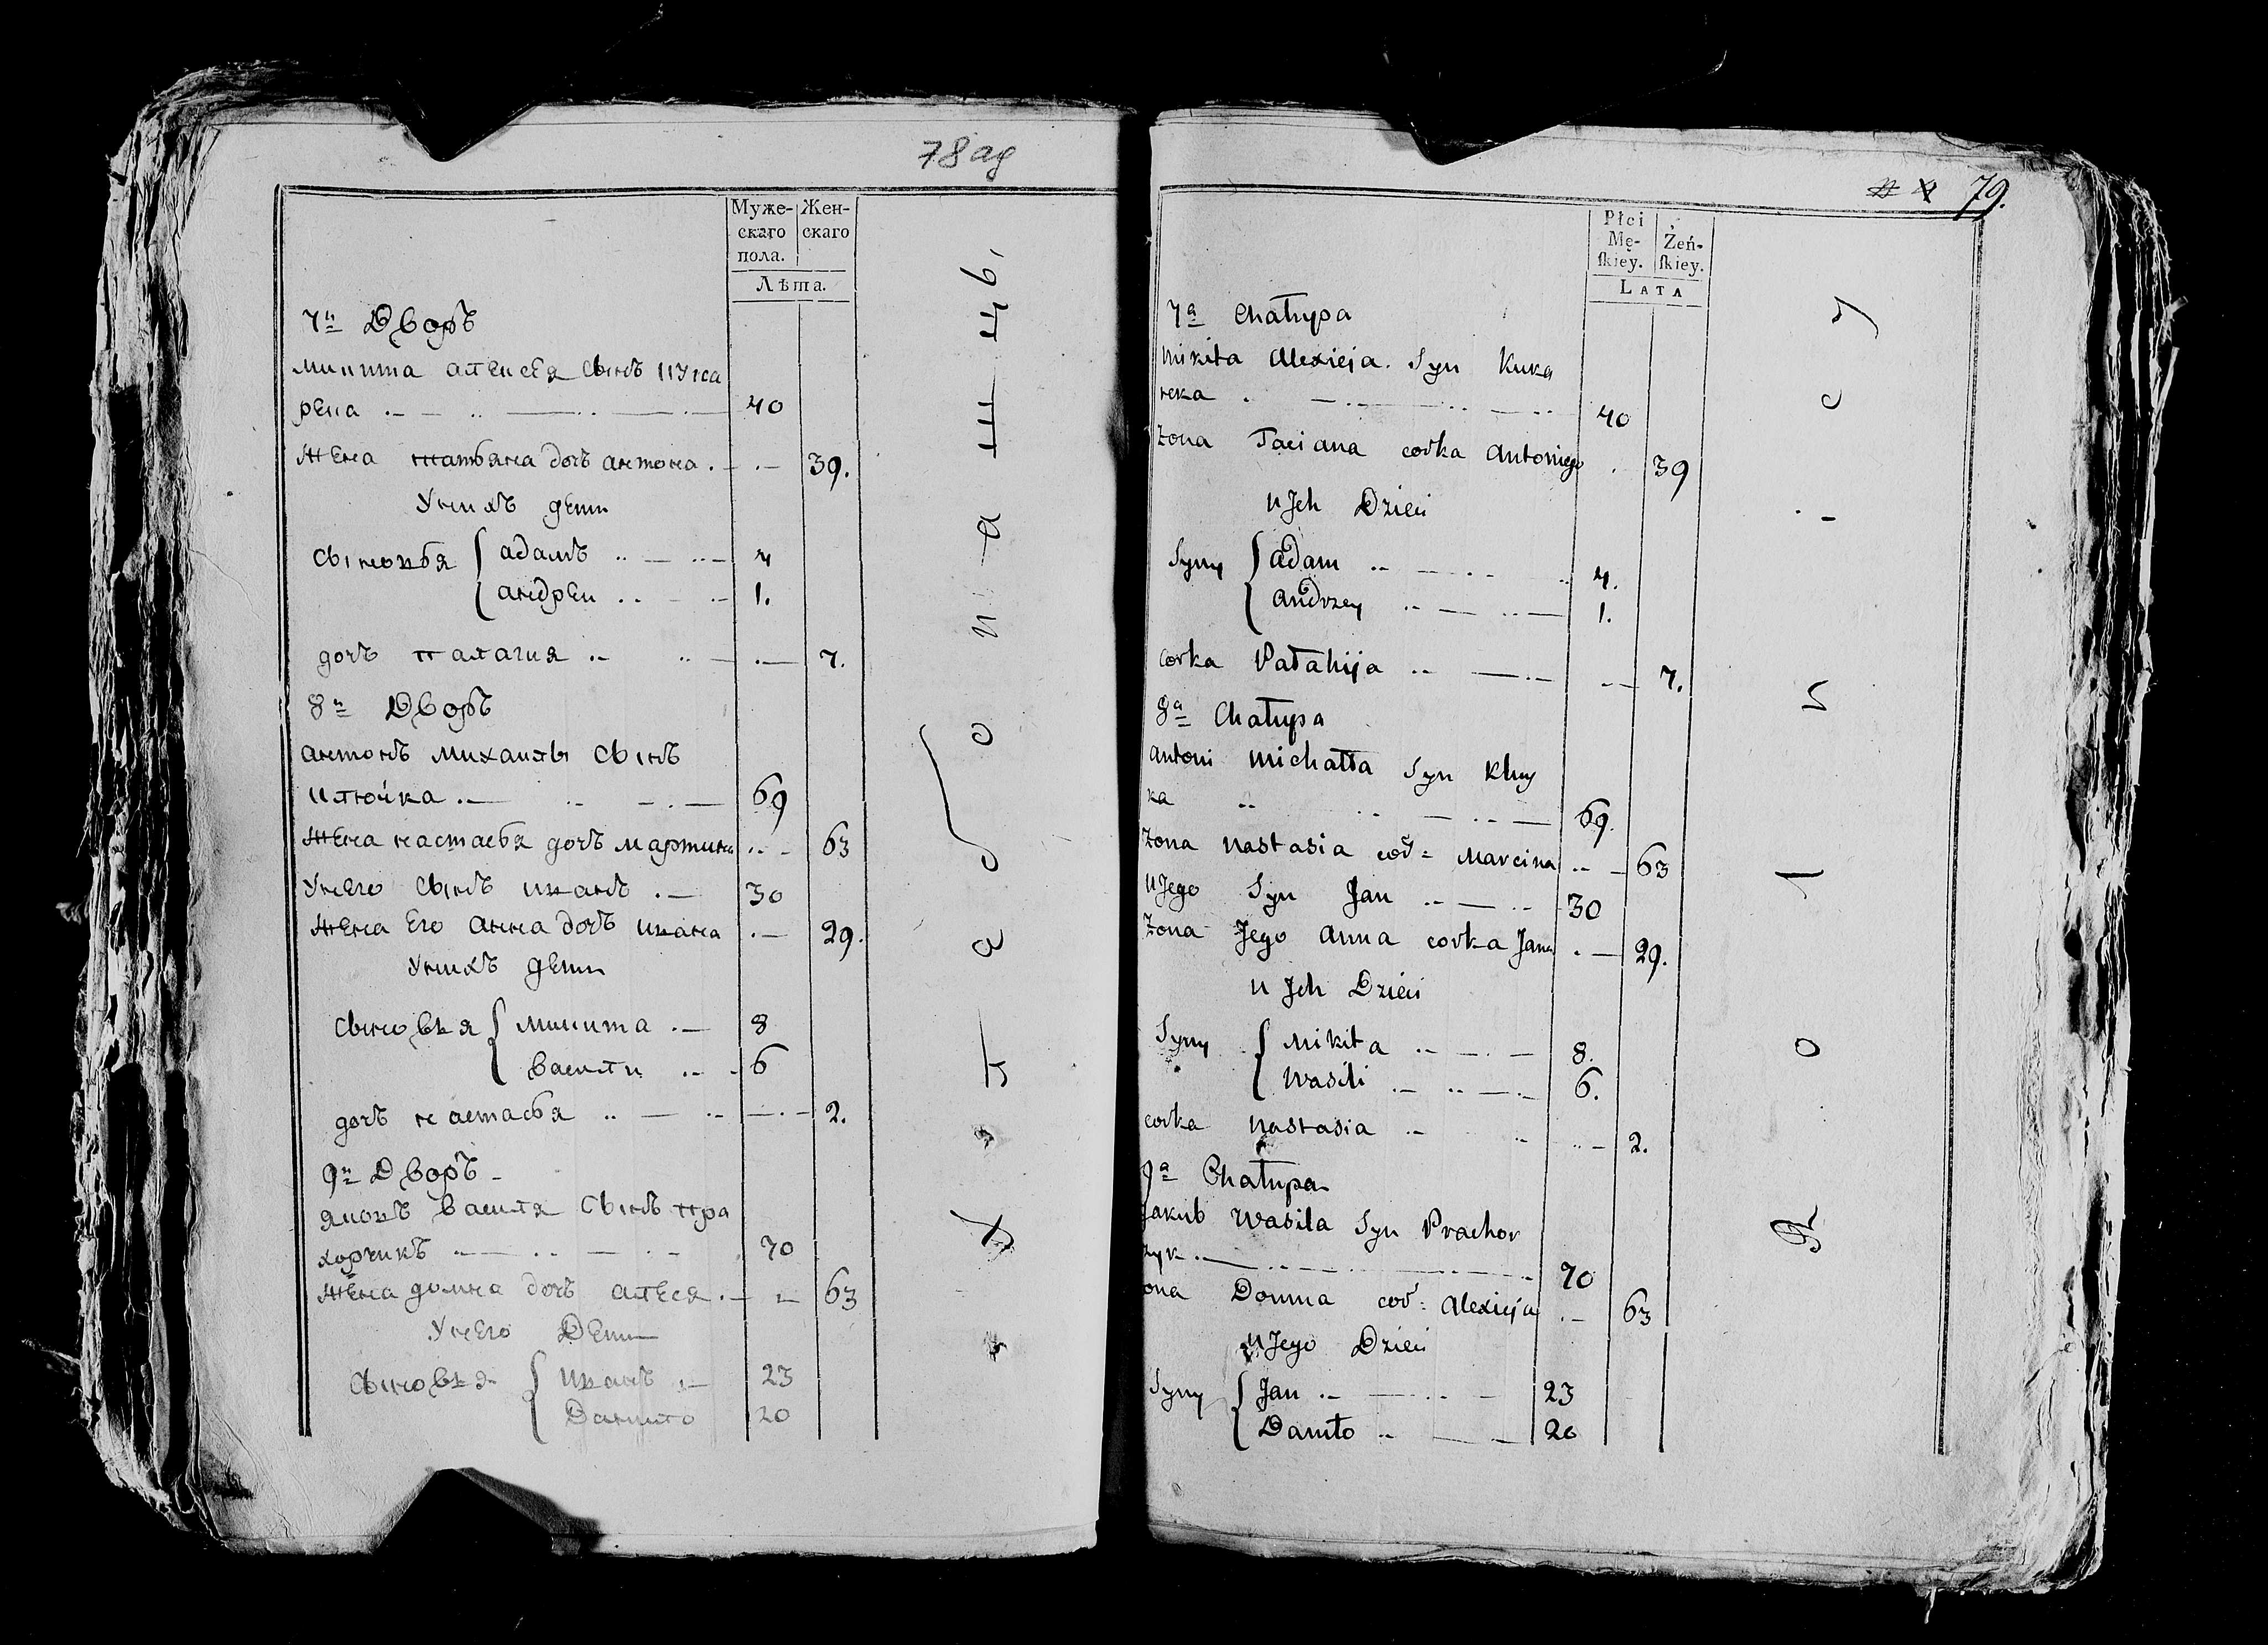 78 ад
Муже-
скаго
пола.
Жен-
скаго
Лѣта.
7й Дворъ
микита алексея сынъ кука
река 40
жена татьяна дочъ антона 39.
У них дети
сыновья адамъ 4
андреи 1.
дочъ палагия 7.
8й Дворъ
антонъ михаилы сынъ
ключка 69
жена настасья дочъ мартина 63
У него сынъ иванъ 30
жена его анна дочъ ивана 29.
У нихъ дети
сыновья микита 8
васили 6
дочъ настасья 2.
9й Дворъ
яковъ василя сынъ пра
хорчикъ 70
жена домна дочъ алексея 63
У него Дети
сыновья иванъ 23
Данило 20
79.
Płci
Mę-
ſkiey.
Żeń-
ſkiey.
LATA
7a Chałupa
Mikita Alexieja Syn Kuka
reka 40
Żona Taciana corka Antoniego 39
u Jch Dzieci
Syny Adam 4.
Andrzey 1.
corka Pałahija 7.
8a Chałupa
Antoni Michałła Syn Kluy
ka 69.
Żona Nastasia cor: Marcina 63
u Jego Syn Jan 30
Żona Jego Anna corka Jana 29.
u Jch Dzieci
Syny Mikita 8.
Wasili 6.
corka Nastasia 2.
9a Chałupa
Jakub Wasila Syn Prachor
zyk 70
ona Domna cor: Alexieja 63
u Jego Dzieci
Syny Jan 23
Daniło 20